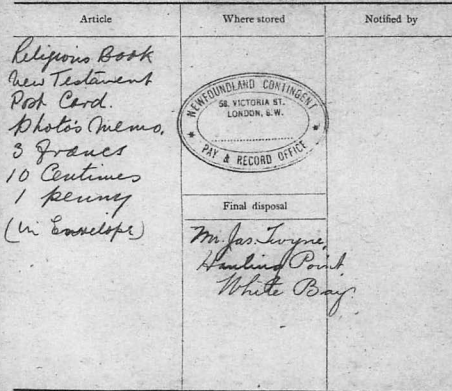 Article
Where stored
Notified by
Religious Book
New Testament
Post Card.
Photo's Memo.
3 francs
10 Centimes
1 penny
(in Envelope)
NEWFOUNDLAND CONTINGENT
58, VICTORIA ST.
LONDON, S.W.
PAY & RECORD OFFICE
Final disposal
Mr. Jas. Twyne,
Hauling Point,
White Bay.